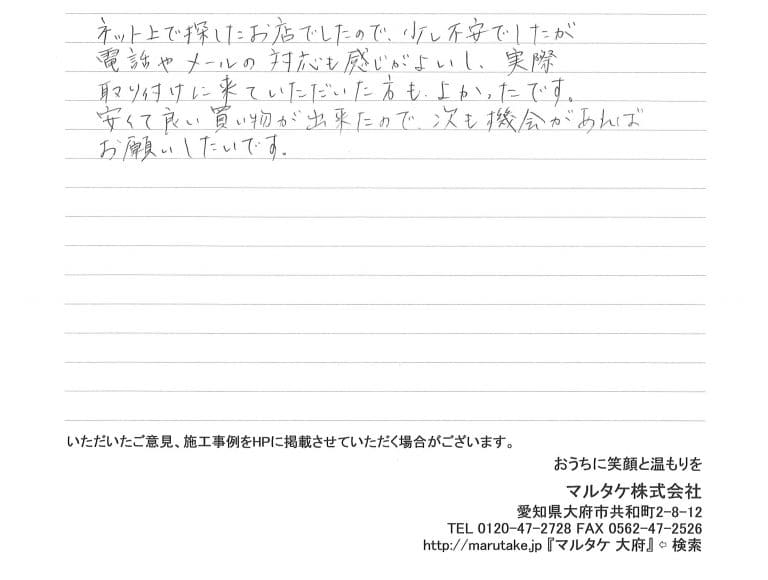 ネット上で探したお店でしたので、少し不安でしたが
電話やメールの対応も感じがよいし、実際
取り付けに来ていただいた方も、よかったです。
安くて良い買い物が出来たので、次も機会があれば
お願いしたいです。
いただいたご意見、施工事例をHPに掲載させていただく場合がございます。
おうちに笑顔と温もりを
マルタケ株式会社
愛知県大府市共和町2-8-12
TEL 0120-47-2728 FAX 0562-47-2526
http://marutake.jp『マルタケ 大府』⇦ 検索